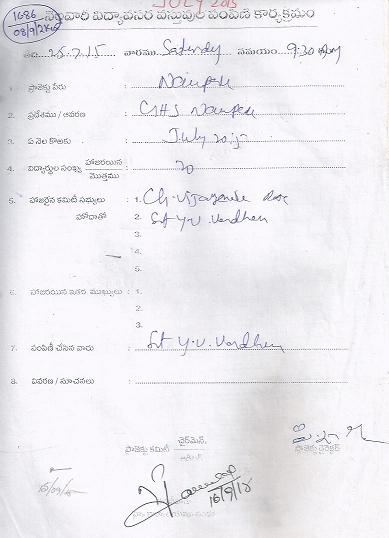 JULY 2015
1686
08/9/2K15
నెలవారీ విద్యావసర వస్తువుల పంపిణీ కార్యక్రమం
తేది 25.7.15 వారము Saturday సమయం 9:30
1. ప్రాజెక్టు పేరు Naupada
2. ప్రదేశము / ఆవరణ Naupada
3. ఏ నెల కొఱకు July 2015
4. విద్యార్థుల సంఖ్య హాజరయిన 20
మొత్తము
5. హాజరైన కమిటీ సభ్యులు 1. Ch.
హోదాతో 2. Y.V. Vardhan
3.
4.
5.
6. హాజరయిన ఇతర ముఖ్యులు : 1.
2.
3.
7. పంపిణీ చేసిన వారు Y.V. Vardhan
8. వివరణ / సూచనలు
చైర్‌మెన్,
ప్రాజెక్టు కమిటీ
ప్రాజెక్టు డైరెక్టర్
16/09/15
16/9/15